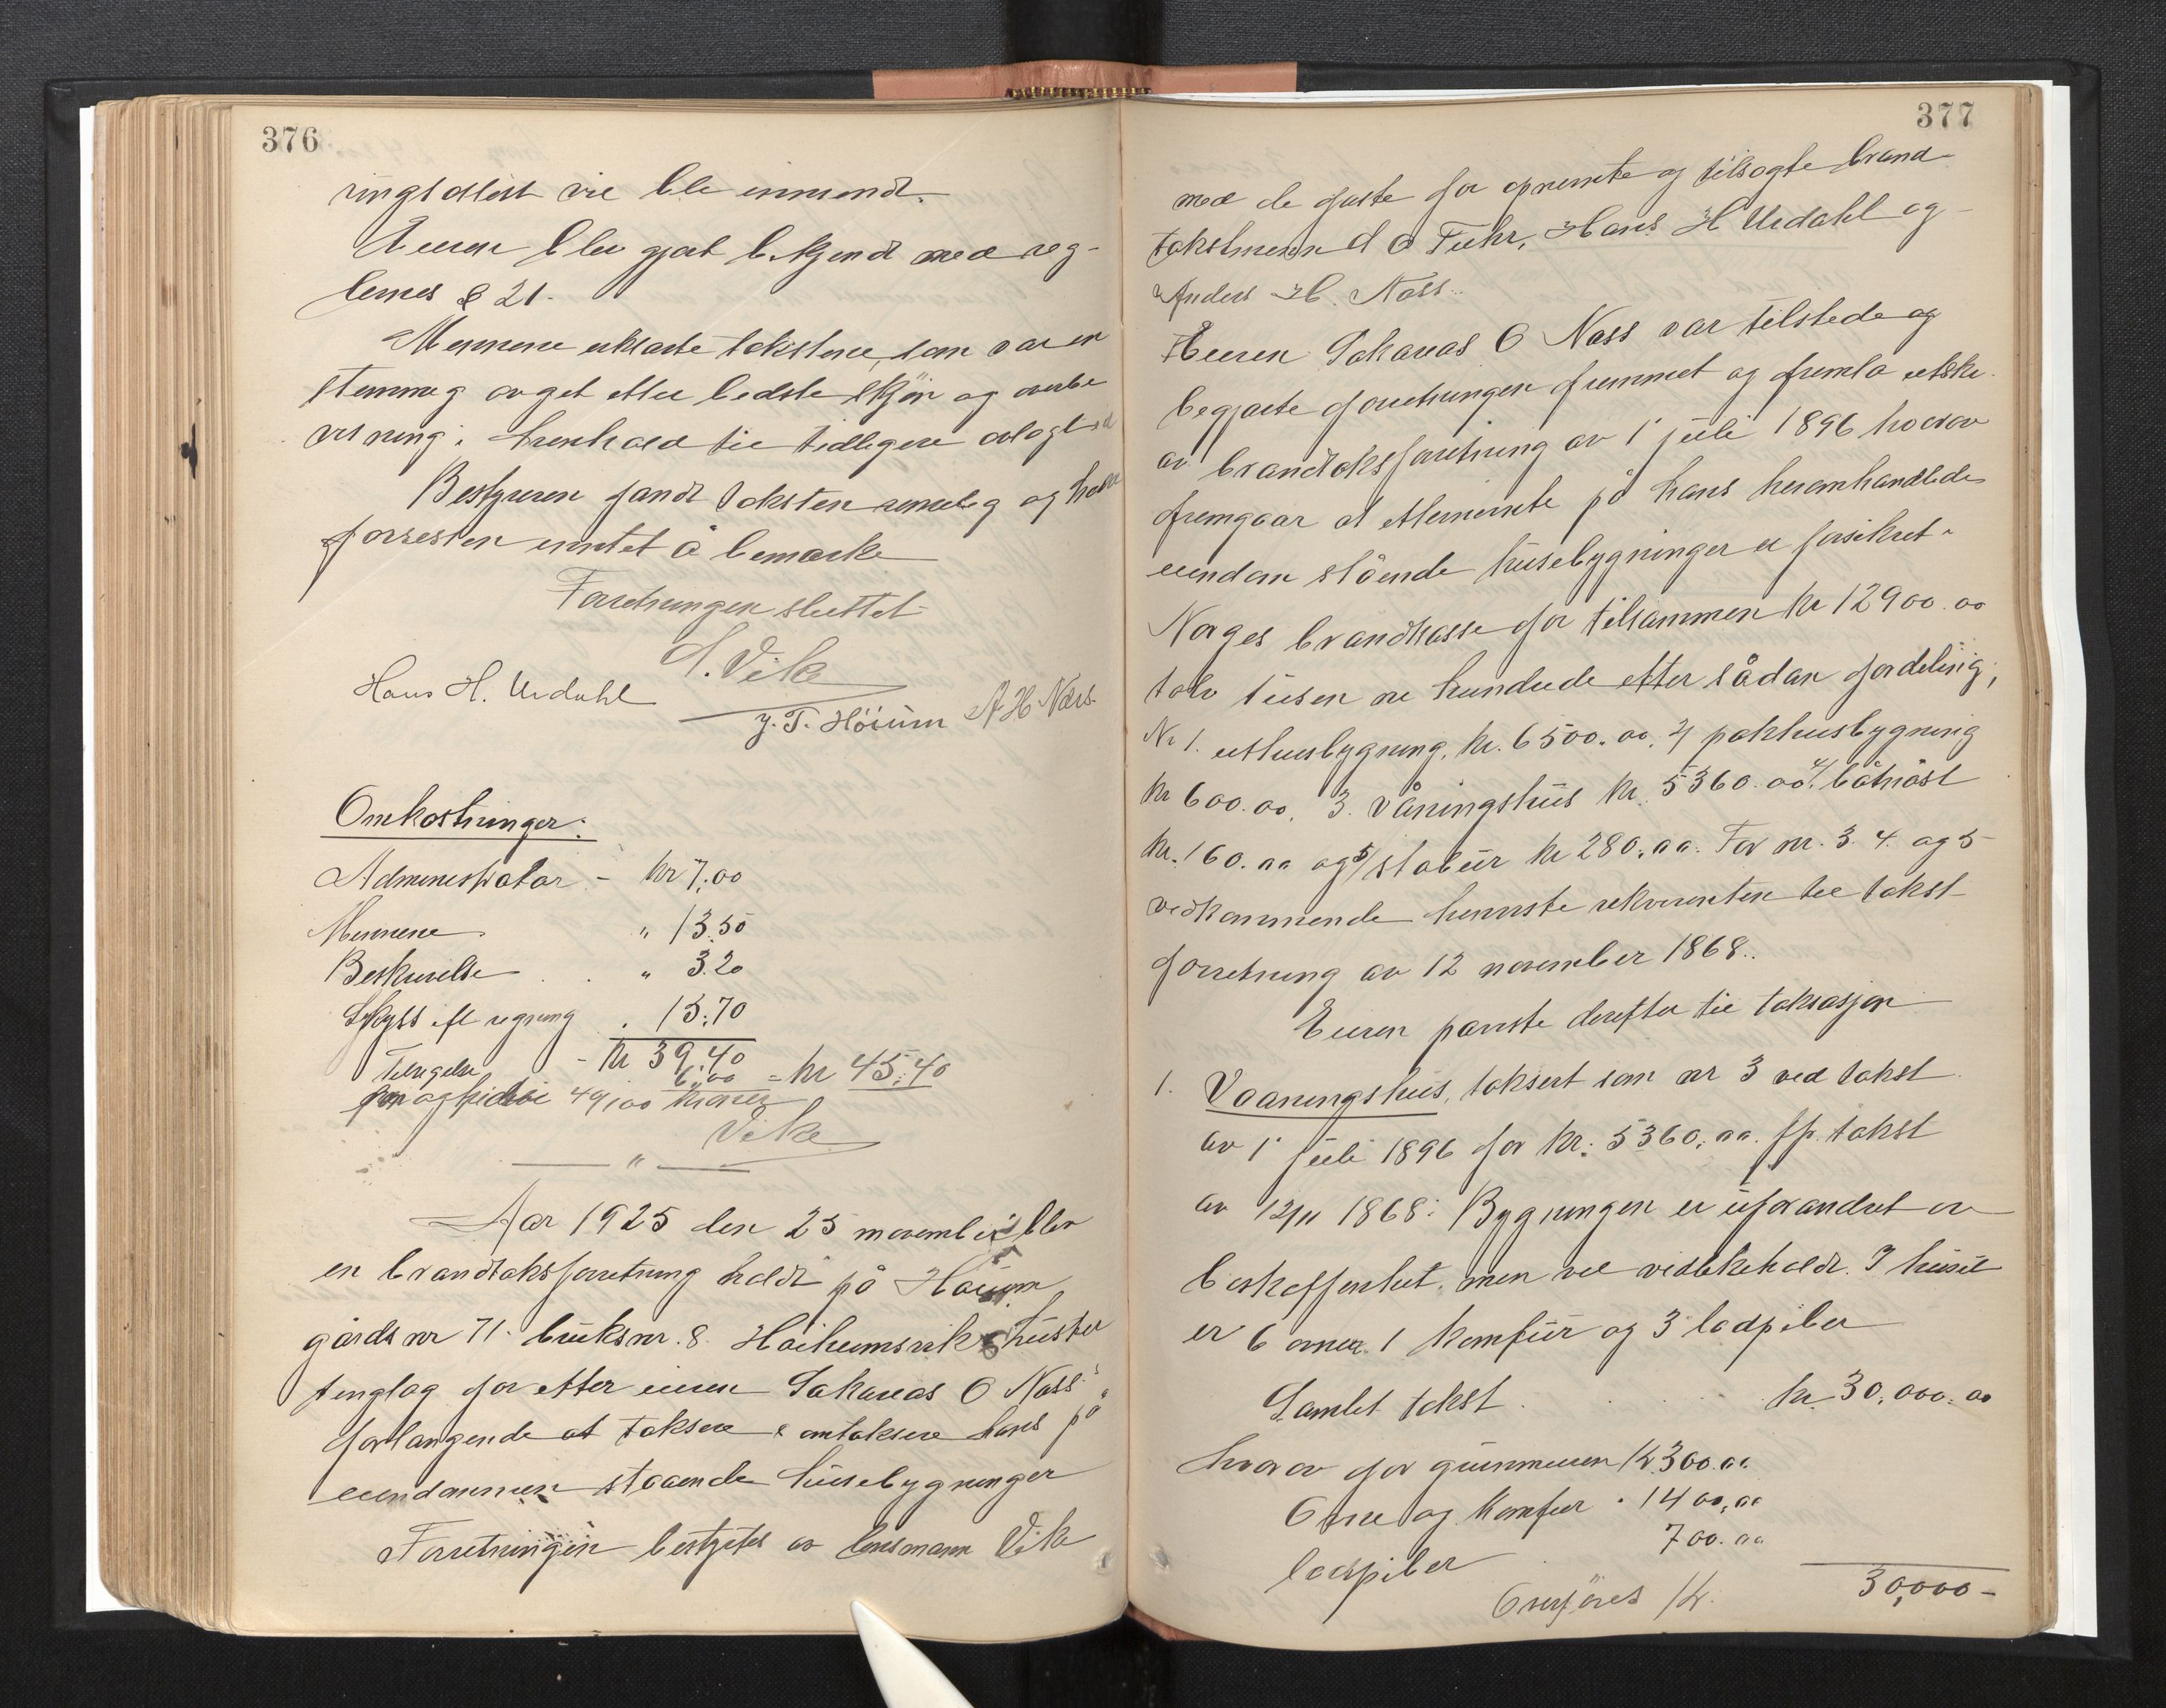 376
ringsattest vil ble innsendt.
Eieren blev gjort bekjendt med reg-
lenes § 21.
Mennene erklærte takstene, som var en
stemmig avget etter bedste skjön og overbe
visning i henhold til tidligere avlagt ed
Bestyreren fandt taksten rimelig og hadde
forresten inntet å bemærke
Forretningen sluttet
S. Vik
Hans H. Urdahl
J. T. Höium A H Næss.
Omkostninger:
Administrator - kr 7.00
Mennene " 13.50
Beskrivelse " 3.20
Skyss efl regning . 15.70
- kr 39.40
Tinglysn 6.00 = kr 45.40
40/100 kroner
Vik
"
Aar 1925 den 25 november blev
en brandtaksforretning holdt på Höium
gårds nr 71. bruks nr. 8. Höiheimsvik Luster
tinglag for etter eieren Sakarias O Næss'
forlangende at taksere & omtaksere hans på
eiendommen staaende husebygninger
Forretningen bestyrtes av lensmann Vik
377
med de faste for opnevnte og tilsagte brand-
takstmenn O Fuhr, Hans H Urdahl og
Anders H. Næss.
Eieren Sakarias O Næss var tilstede og
begjærte forretningen fremmet og fremla utskr.
av brandtaksforretning av 1' juli 1896 hvorav
fremgaar at etternevnte på hans heromhandlede
eiendom stående husebygninger er forsikret i
Norges brandkasse for tilsammen kr 12900.00
tolv tusen ni hundrede etter sådan fordeling;
Nr 1. uthusbygning, kr. 6500.00, 2/ pakhusbygning
kr 600.00, 3. Våningshus kr. 5360.00, 4/ båtnöst
kr. 160.00 og 5/ stabur kr 280.00. For nr. 3. 4. og 5
vedkommende henviste rekvirenten til takst
forretning av 12 november 1868.
Eieren paaviste derefter til taksasjon
1. Vaaningshus, taksert som nr 3 ved takst
av 1' juli 1896 for kr. 5360.00. jfr. takst
av 12/11 1868: Bygningen er uforandret av
beskaffenhet, men vel vedlikeholdt. I huset
er 6 ovner. 1 komfur og 3 ladpiber
Samlet takst . . . kr 30.000.00
hvorav for grunmuren kr 300.00
Ovne og komfur " 1400.00
ladpiber 700.00
Overföres kr. 30,000-